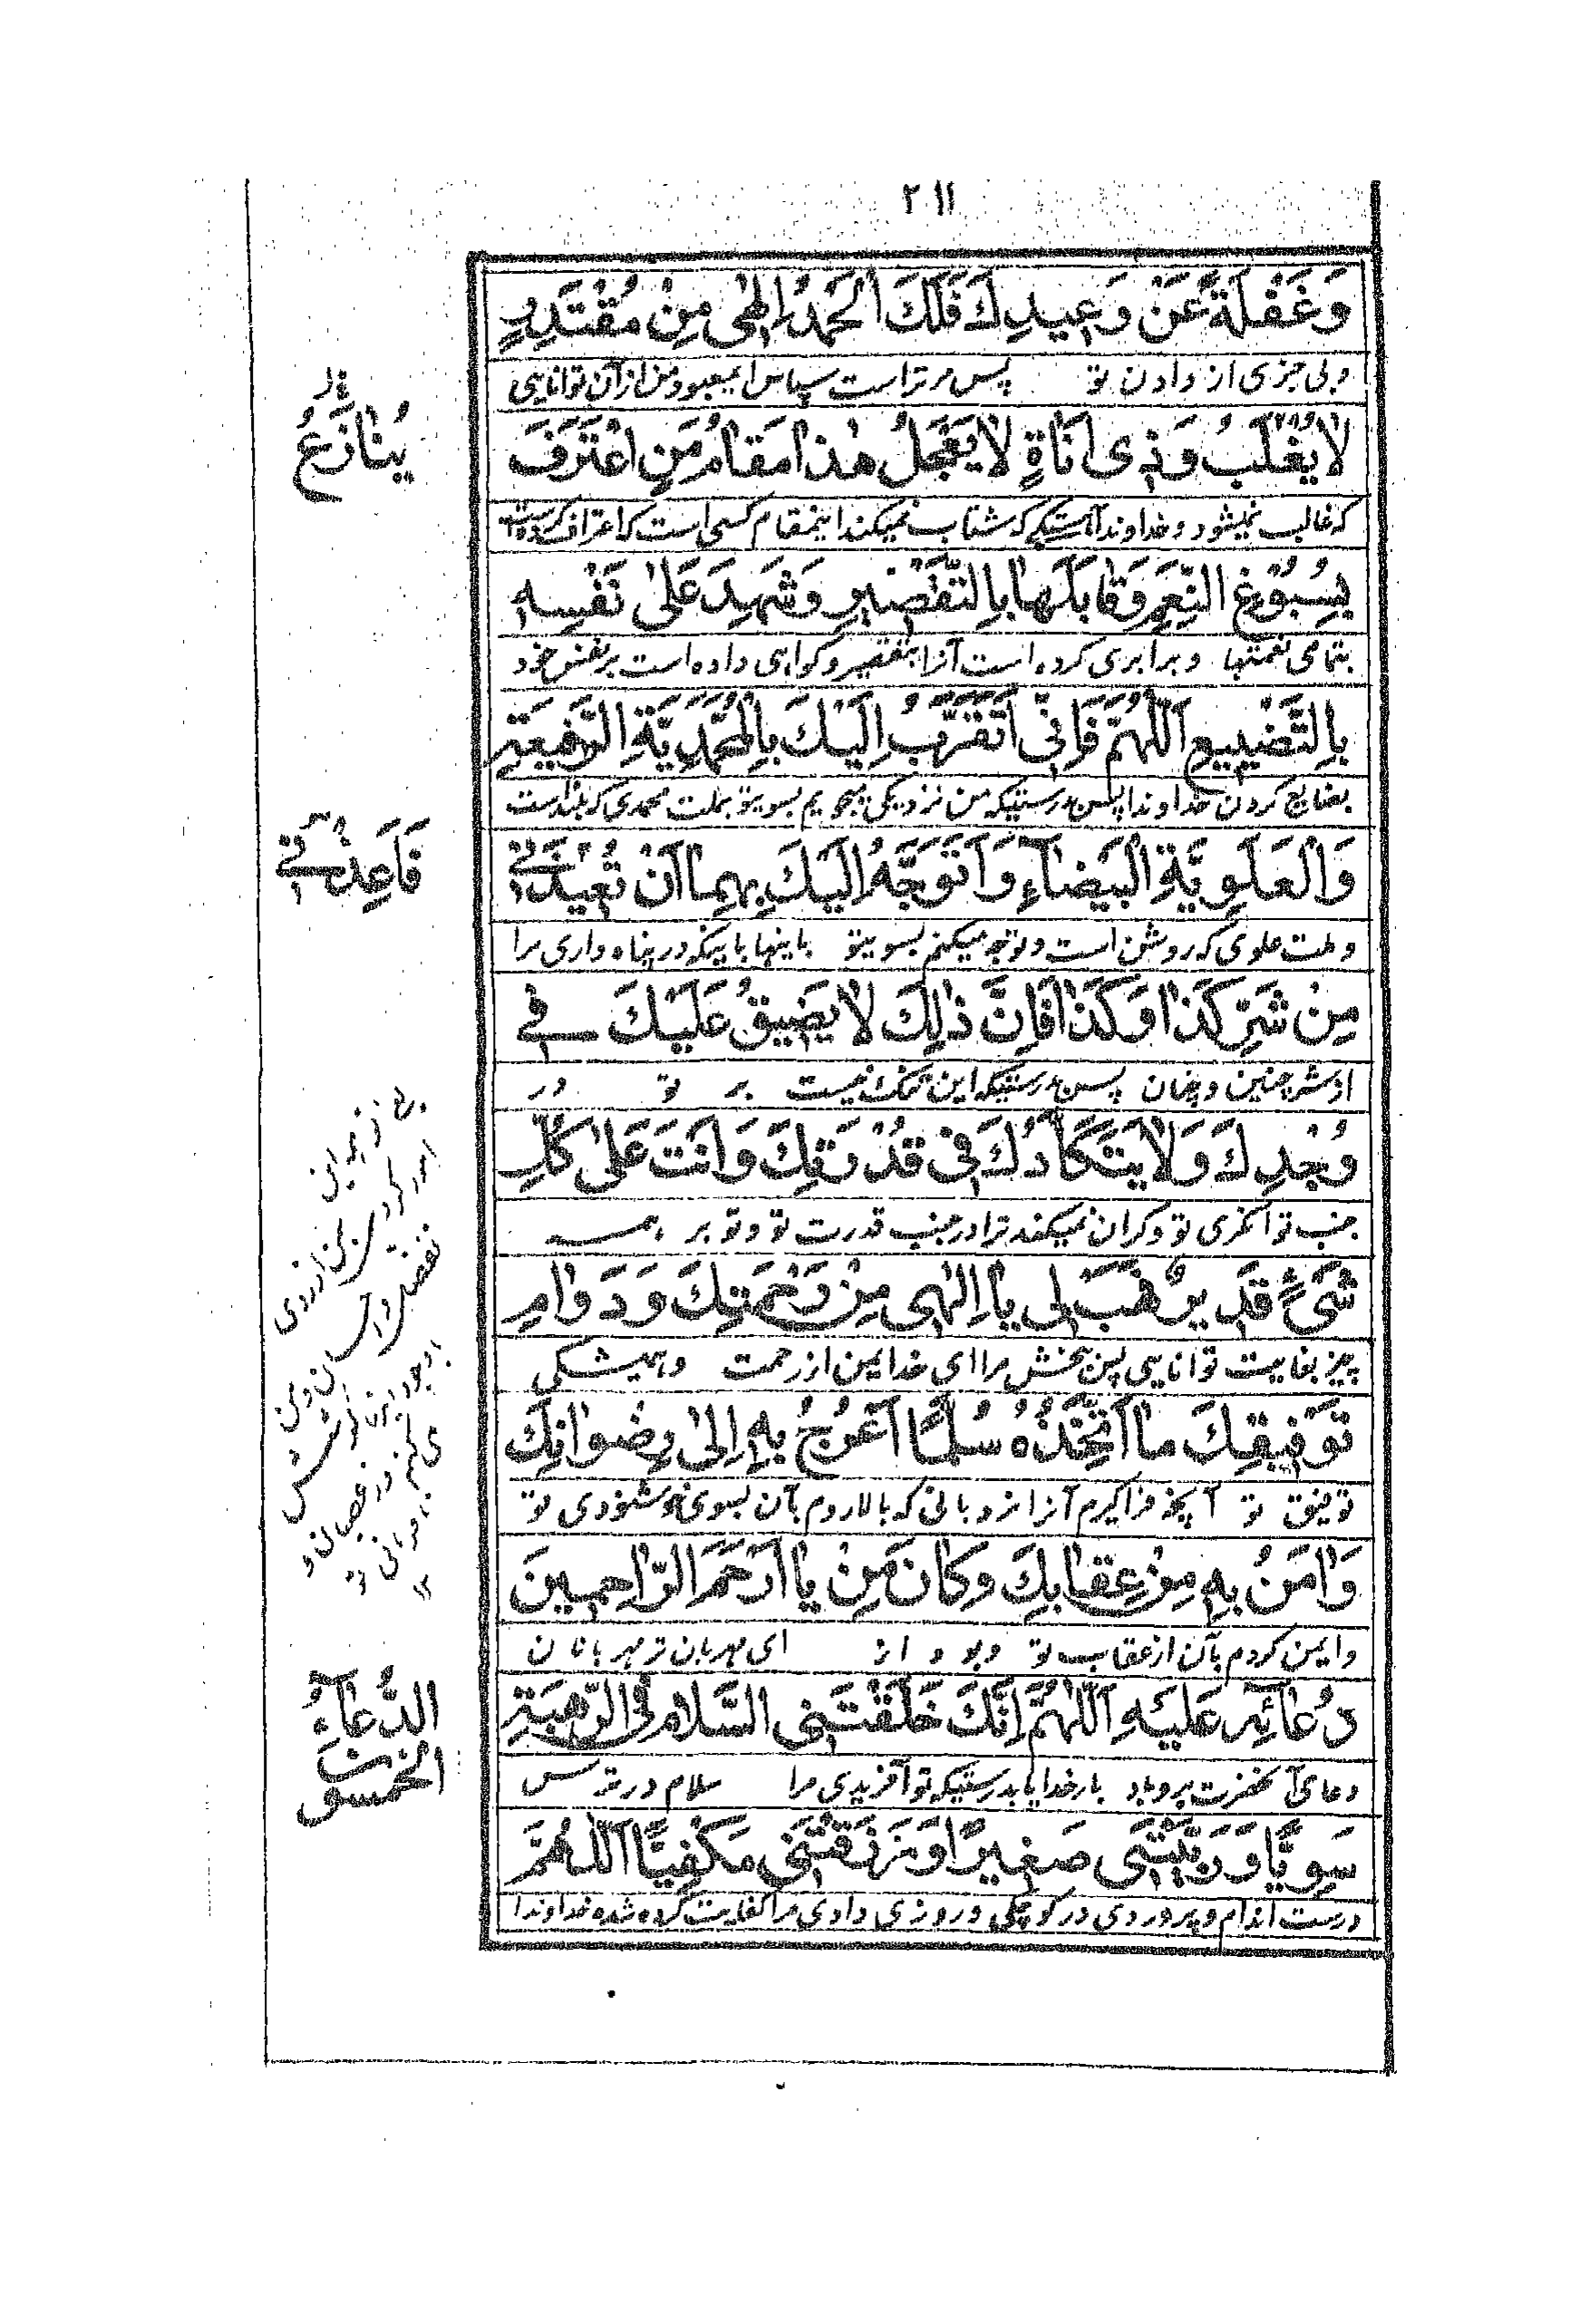 ۲۱۱
وَغَفْلَةً عَنْ وَعِيدِكَ فَلَكَ الْحَمْدُ اِلٰهى مِنْ مُقْتَدِرٍ
و بی خبری از دادن تو پس مر تراست سپاس ایمعبود من از آن توانایی
لا يُغْلَبُ وَذى اَناةٍ لا يَعْجَلُ هٰذا مَقامُ مَنِ اعْتَرَفَ
که غالب نمیشود و خداوند که شتاب نمیکند اینمقام کسی است که اعتراف کرده است
بِسُبُوغِ النِّعَمِ وَقابَلَها بِالتَّقْصيرِ وَشَهِدَ عَلى نَفْسِهِ
بتمامی نعمتها و برابری کرده است آنرا بتقصیر و گواهی داده است بر نفس خود
بِالتَّضْييعِ اَللّٰهُمَّ فَاِنّى اَتَقَرَّبُ اِلَيْكَ بِالْمُحَمَّدِيَّةِ الرَّفيعَةِ
بضایع کردن خداوندا پس بدرستیکه من نزدیکی میجویم بسویتو بملت محمدی که بلند است
وَالْعَلَوِيَّةِ الْبَيْضآءِ وَاَتَوَجَّهُ اِلَيْكَ بِهِما اَنْ تُعيذَنى
و ملت علوی که روشن است و توجه میکنم بسویتو باینها باینکه در پناه داری مرا
مِنْ شَرِّ كَذا وَكَذا فَاِنَّ ذٰلِكَ لا يَضيقُ عَلَيْكَ فى
از شر چنین و چنان پس بدرستیکه این تنگ نیست بر تو در
وُجْدِكَ وَلا يَتَكَأَّدُكَ فى قُدْرَتِكَ وَاَنْتَ عَلى كُلِّ
جنب توانگری تو و گران نمیکند ترا در جنب قدرت تو و تو بر همه
شَىْءٍ قَديرٌ فَهَبْ لى يا اِلٰهى مِنْ رَحْمَتِكَ وَدَوامِ
چیز بغایت توانایی پس ببخش مرا ای خدایمن از رحمت و همیشگی
تَوْفيقِكَ ما اَتَّخِذُهُ سُلَّمًا اَعْرُجُ بِهِ اِلى رِضْوانِكَ
توفیق تو آنچه فراگیرم آنرا نردبانی که بالا روم بآن بسوی خوشنودی تو
وَاٰمَنُ بِهِ مِنْ عِقابِكَ وَكانَ مِنْ يا اَرْحَمَ الرّاحِمينَ
و ایمن گردم بآن از عقاب تو و بود از ای مهربان تر مهربانان
دُعائِهِ عَلَيْهِ اَللّٰهُمَّ اِنَّكَ خَلَقْتَنى السَّلامُ فِى الرَّهْبَةِ
دعای آنحضرت پروباد بار خدایا بدرستیکه تو آفریدی مرا سلام در ترس
سَوِيًّا وَرَبَّيْتَنى صَغيرًا وَرَزَقْتَنى مَكْفِيًّا اَللّٰهُمَّ
درست اندام و پروردی در کوچکی و روزی دادی مرا کفایت کرده شده خداوندا
يُنازَعُ
فَاَعِذْنى
الدُّعآءُ
الخمسون